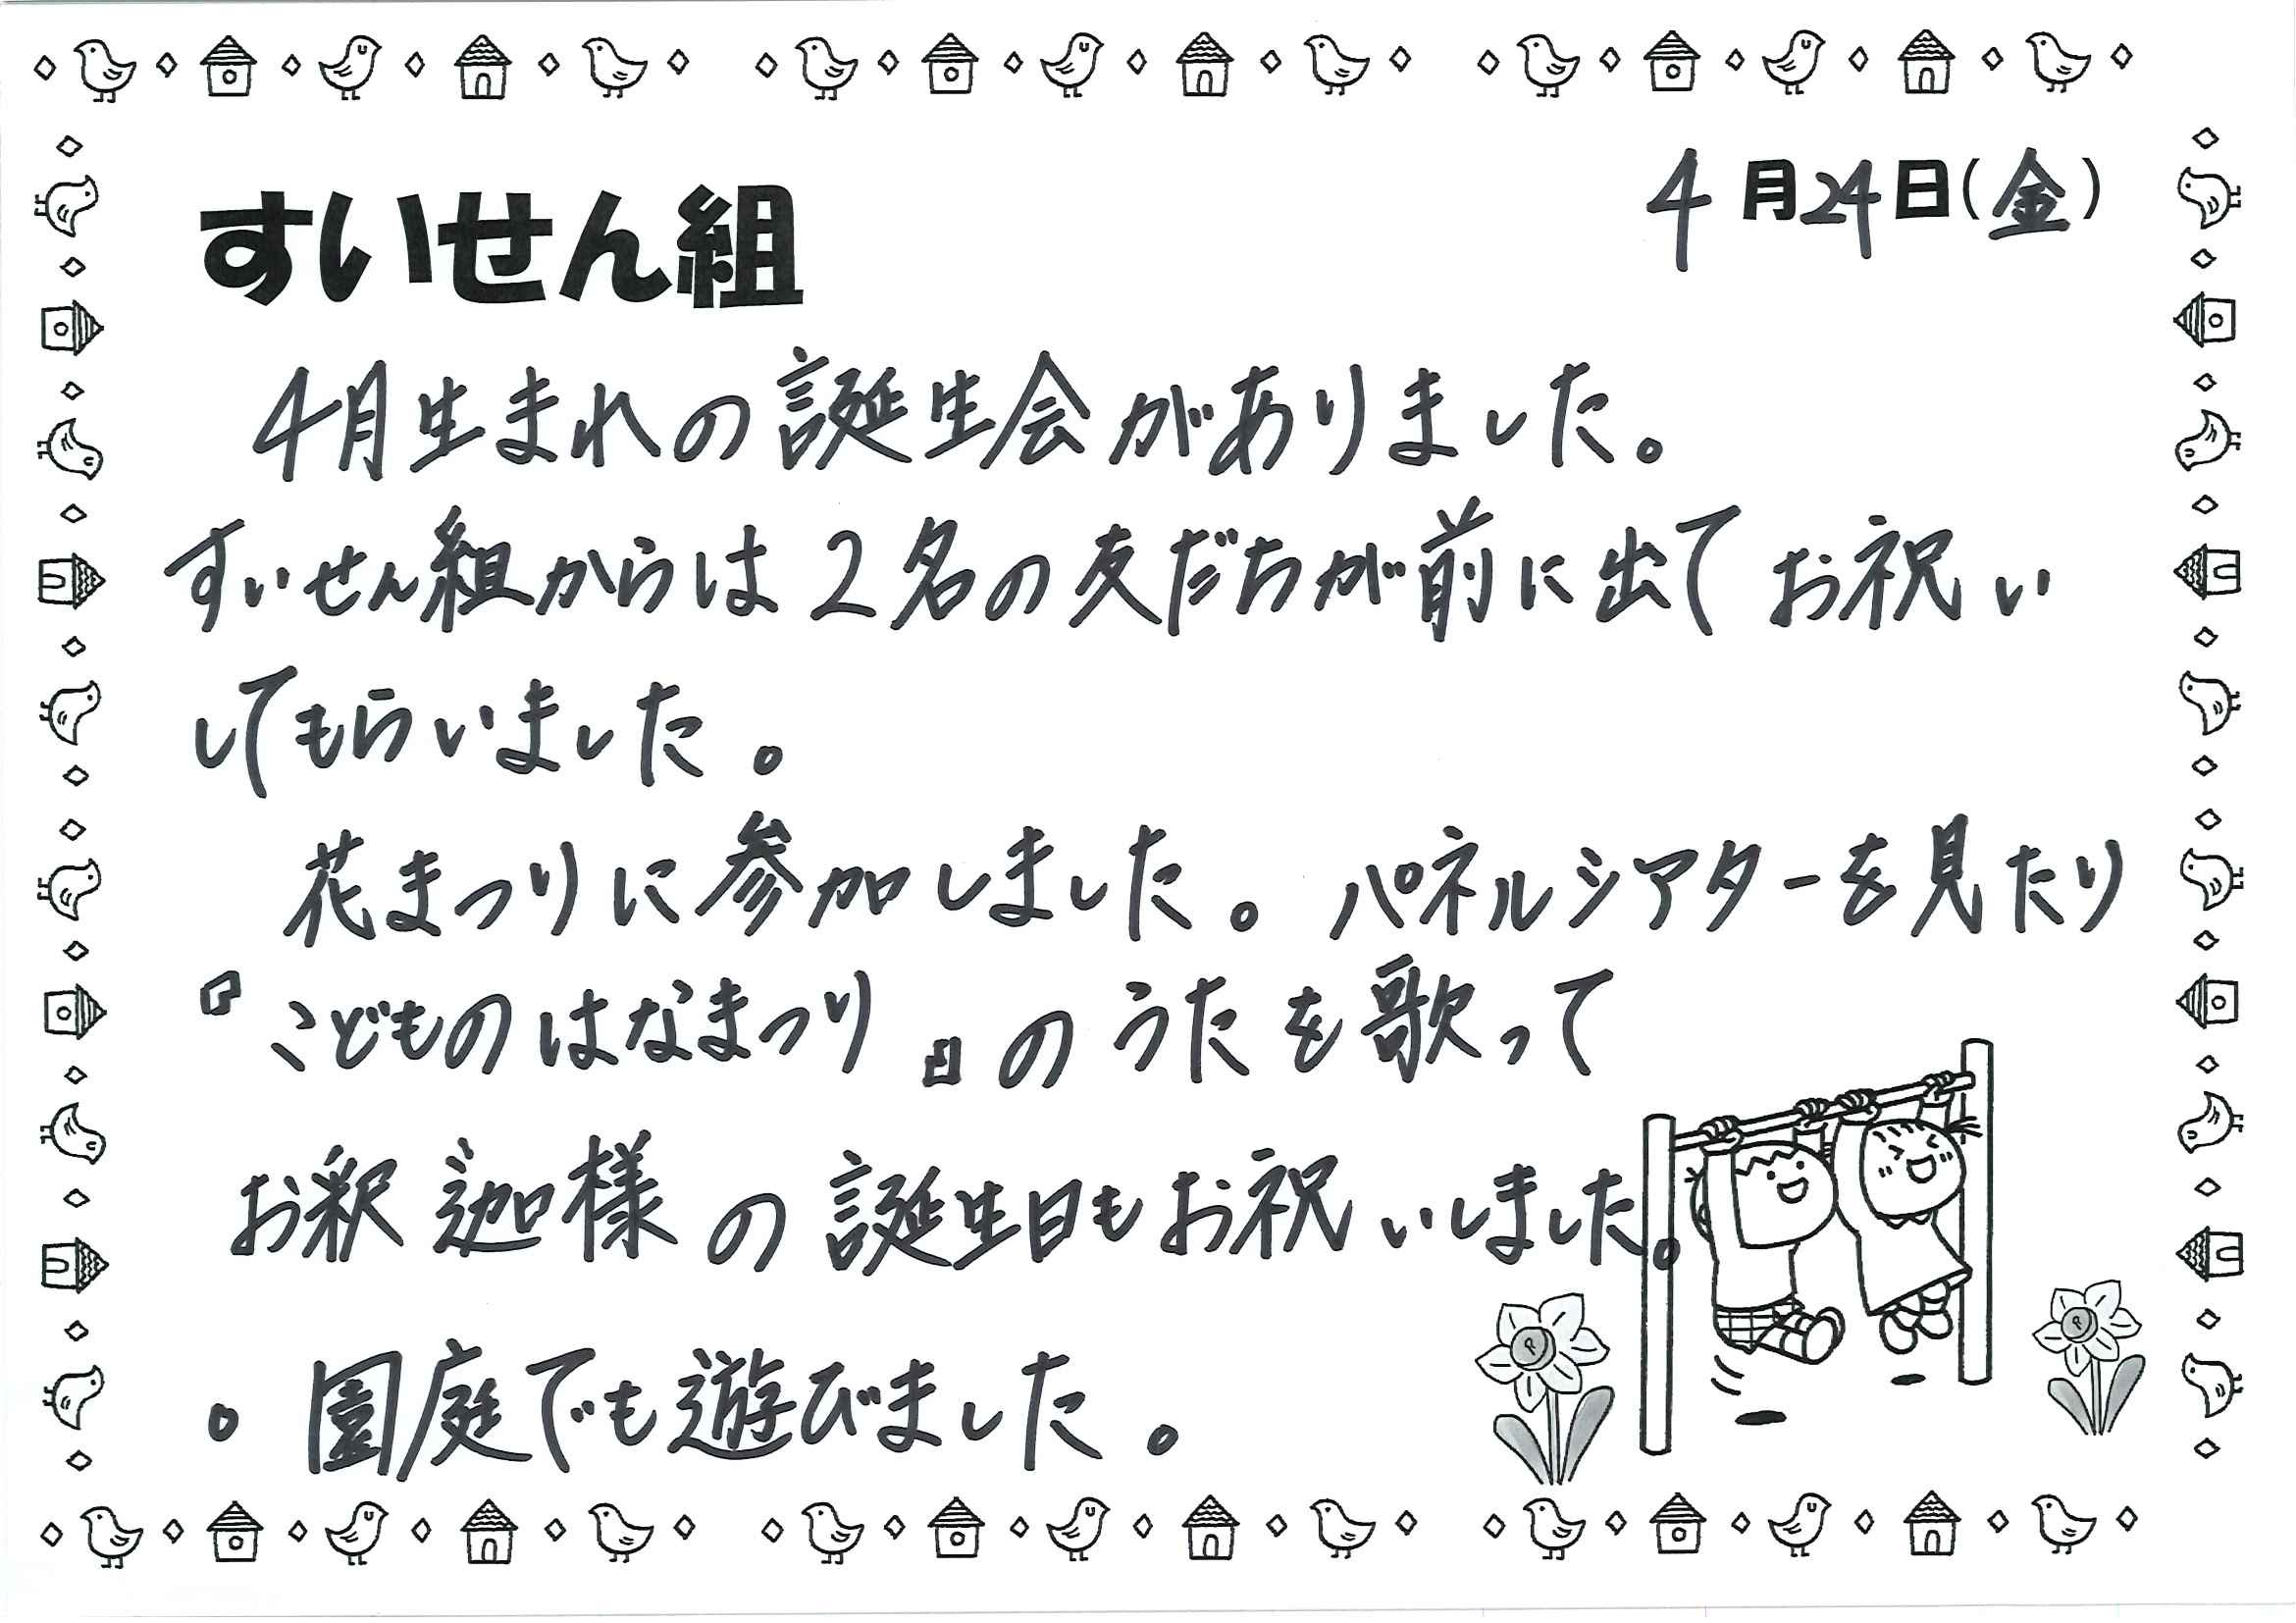 4月24日(金)
すいせん組
4月生まれの誕生会がありました。
すいせん組からは2名の友だちが前に出てお祝い
してもらいました。
花まつりに参加しました。パネルシアターを見たり
『こどものはなまつり』のうたを歌って
お釈迦様の誕生日もお祝いしました。
。園庭でも遊びました。